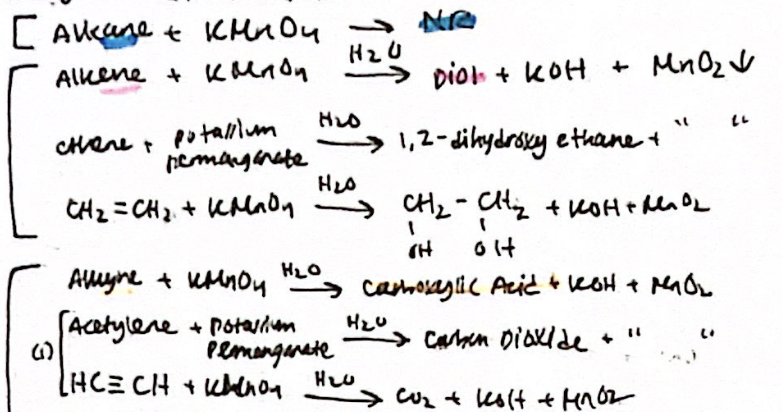 [ Alkane + KMnO4 → NR
Alkene + KMnO4 H2O → Diol + KOH + MnO2 ↓
ethene + potassium permanganate H2O → 1,2-dihydroxy ethane + " "
CH2 = CH2 + KMnO4 H2O → CH2 - CH2 + KOH + MnO2
OH OH
Alkyne + KMnO4 H2O → Carboxylic Acid + KOH + MnO2
(1) Acetylene + Potassium Permanganate H2O → Carbon Dioxide + " "
HC ≡ CH + KMnO4 H2O → CO2 + KOH + MnO2